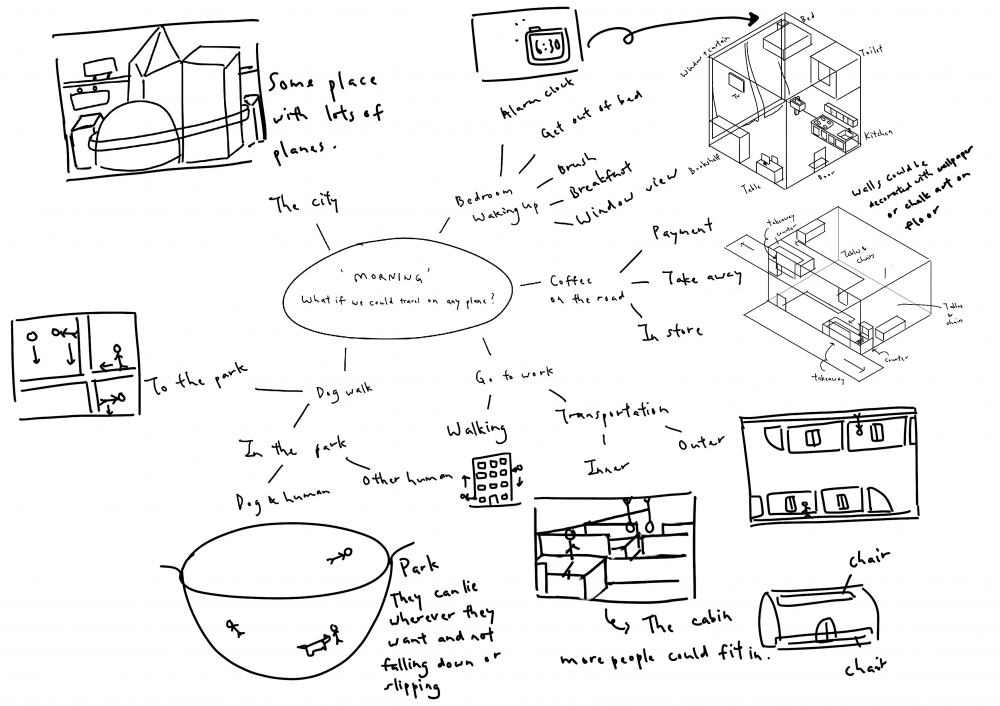 Some place
with lots of
planes.
6:30
Alarm clock
Get out of bed
Brush
Breakfast
Window view
Bedroom
Waking up
Window & curtain
Bed
Toilet
TV
Kitchen
Bookshelf
Table
Door
walls could be
decorated with wallpaper
or chalk art on
floor
The city
'MORNING'
What if we could travel on any plane?
Coffee
on the road
Payment
Take away
In store
takeaway
counter
Table &
chair
Tables
&
chairs
counter
takeaway
To the park
Dog walk
In the park
Dog & human
Other human
Go to work
Walking
Transportation
Inner
Outer
Park
They can lie
wherever they
want and not
falling down or
slipping
The cabin
more people could fit in.
chair
chair